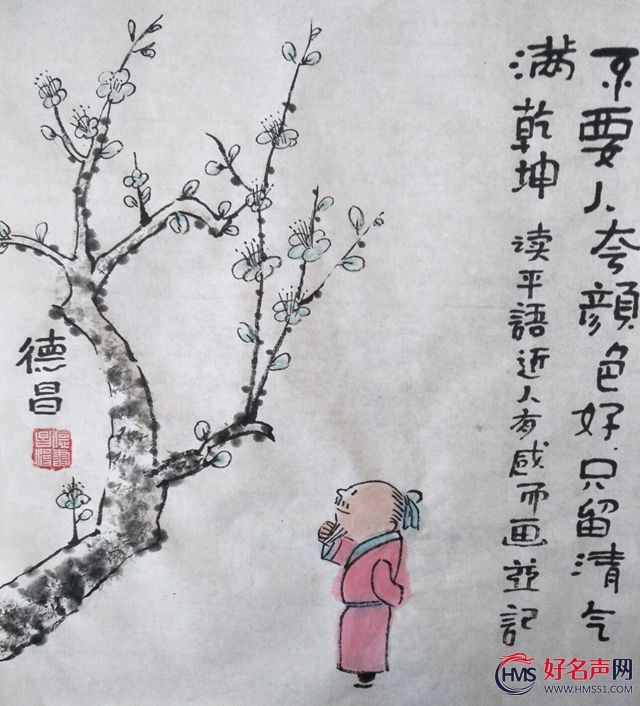 不要人夸顔色好只留清气
满乾坤 读平語近人有感而画並記
德昌
HMS 好名声网
WWW.HMS51.COM